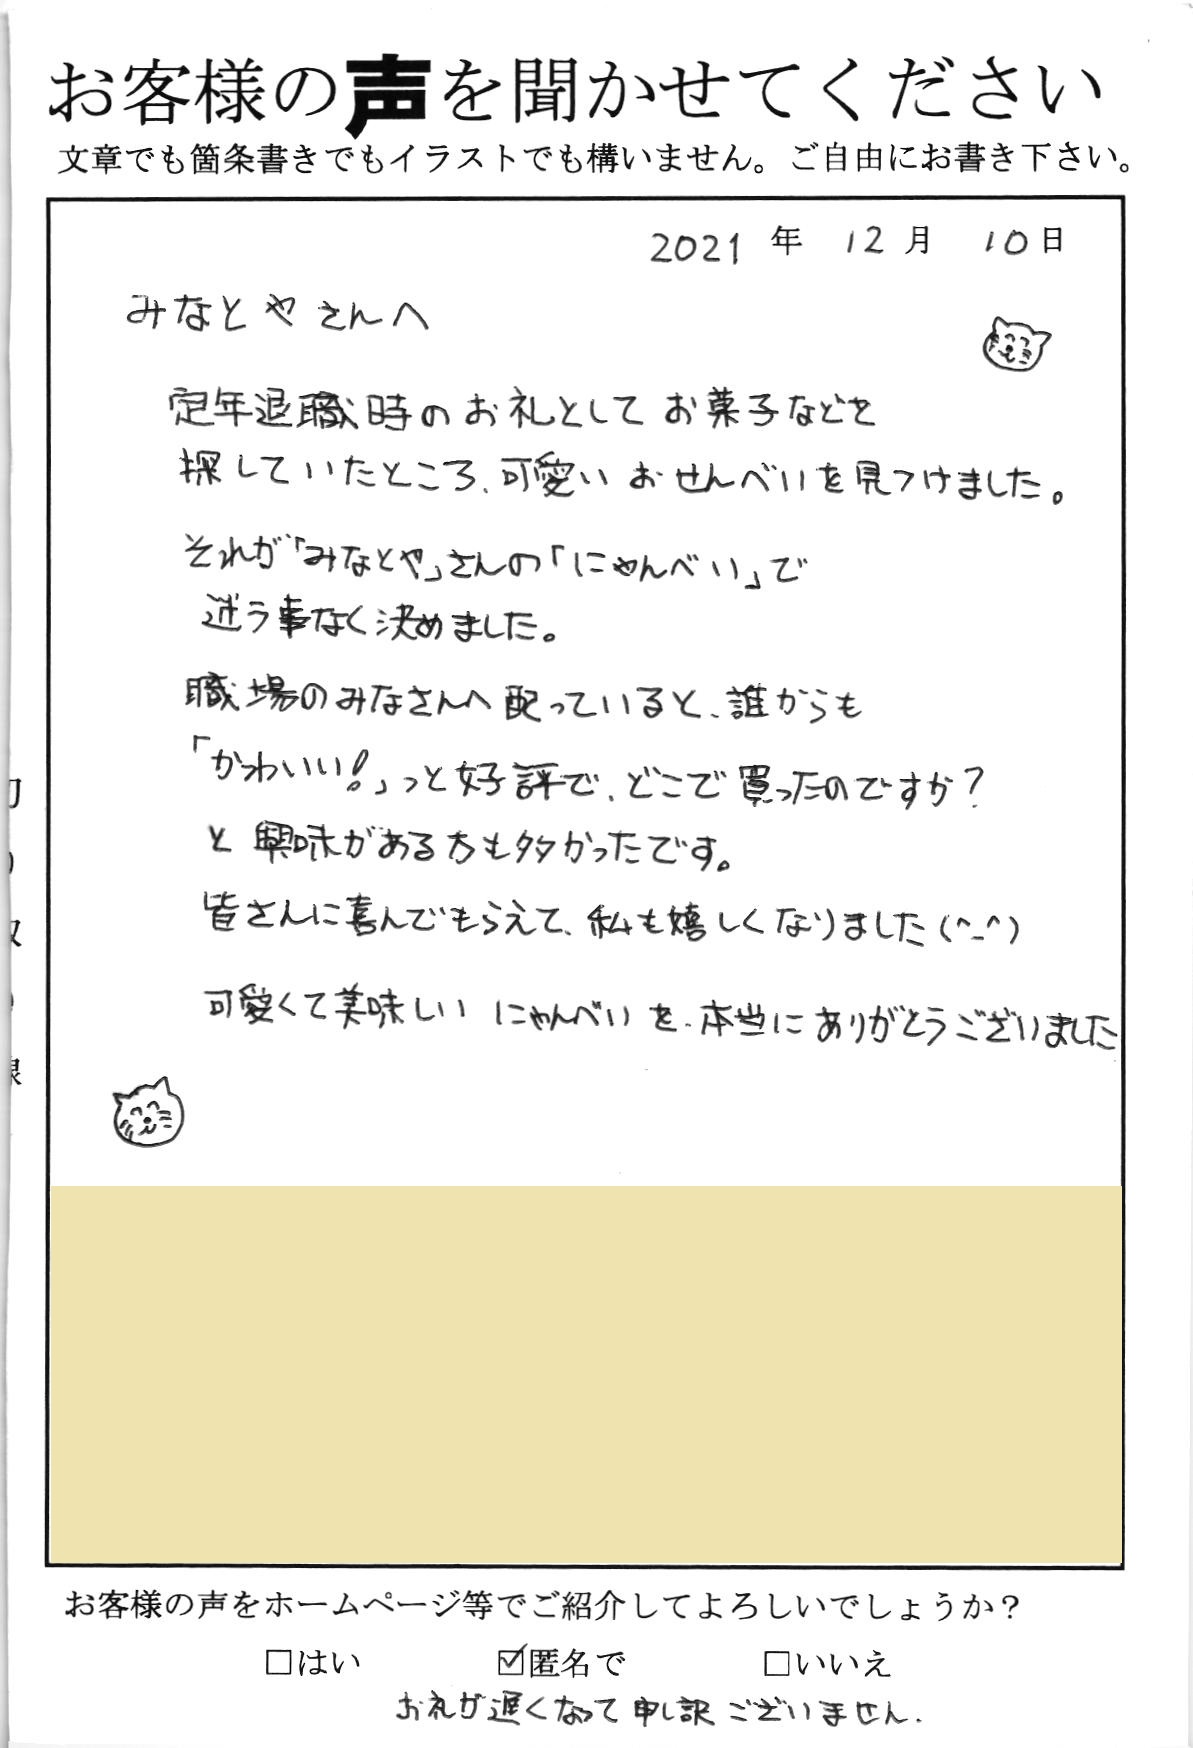 お客様の声を聞かせてください
文章でも箇条書きでもイラストでも構いません。ご自由にお書き下さい。
2021 年 12 月 10 日
みなとやさんへ
定年退職時のお礼として お菓子などを
探していたところ、可愛い おせんべいを見つけました。
それが「みなとや」さんの「にゃんべい」で
迷う事なく決めました。
職場のみなさんへ配っていると、誰からも
「かわいい!」っと好評で、どこで買ったのですか?
と興味がある方も多かったです。
皆さんに喜んでもらえて、私も嬉しくなりました(^-^)
可愛くて美味しい にゃんべいを、本当にありがとうございました
お客様の声をホームページ等でご紹介してよろしいでしょうか?
□はい ☑匿名で □いいえ
お礼が遅くなって申し訳ございません.